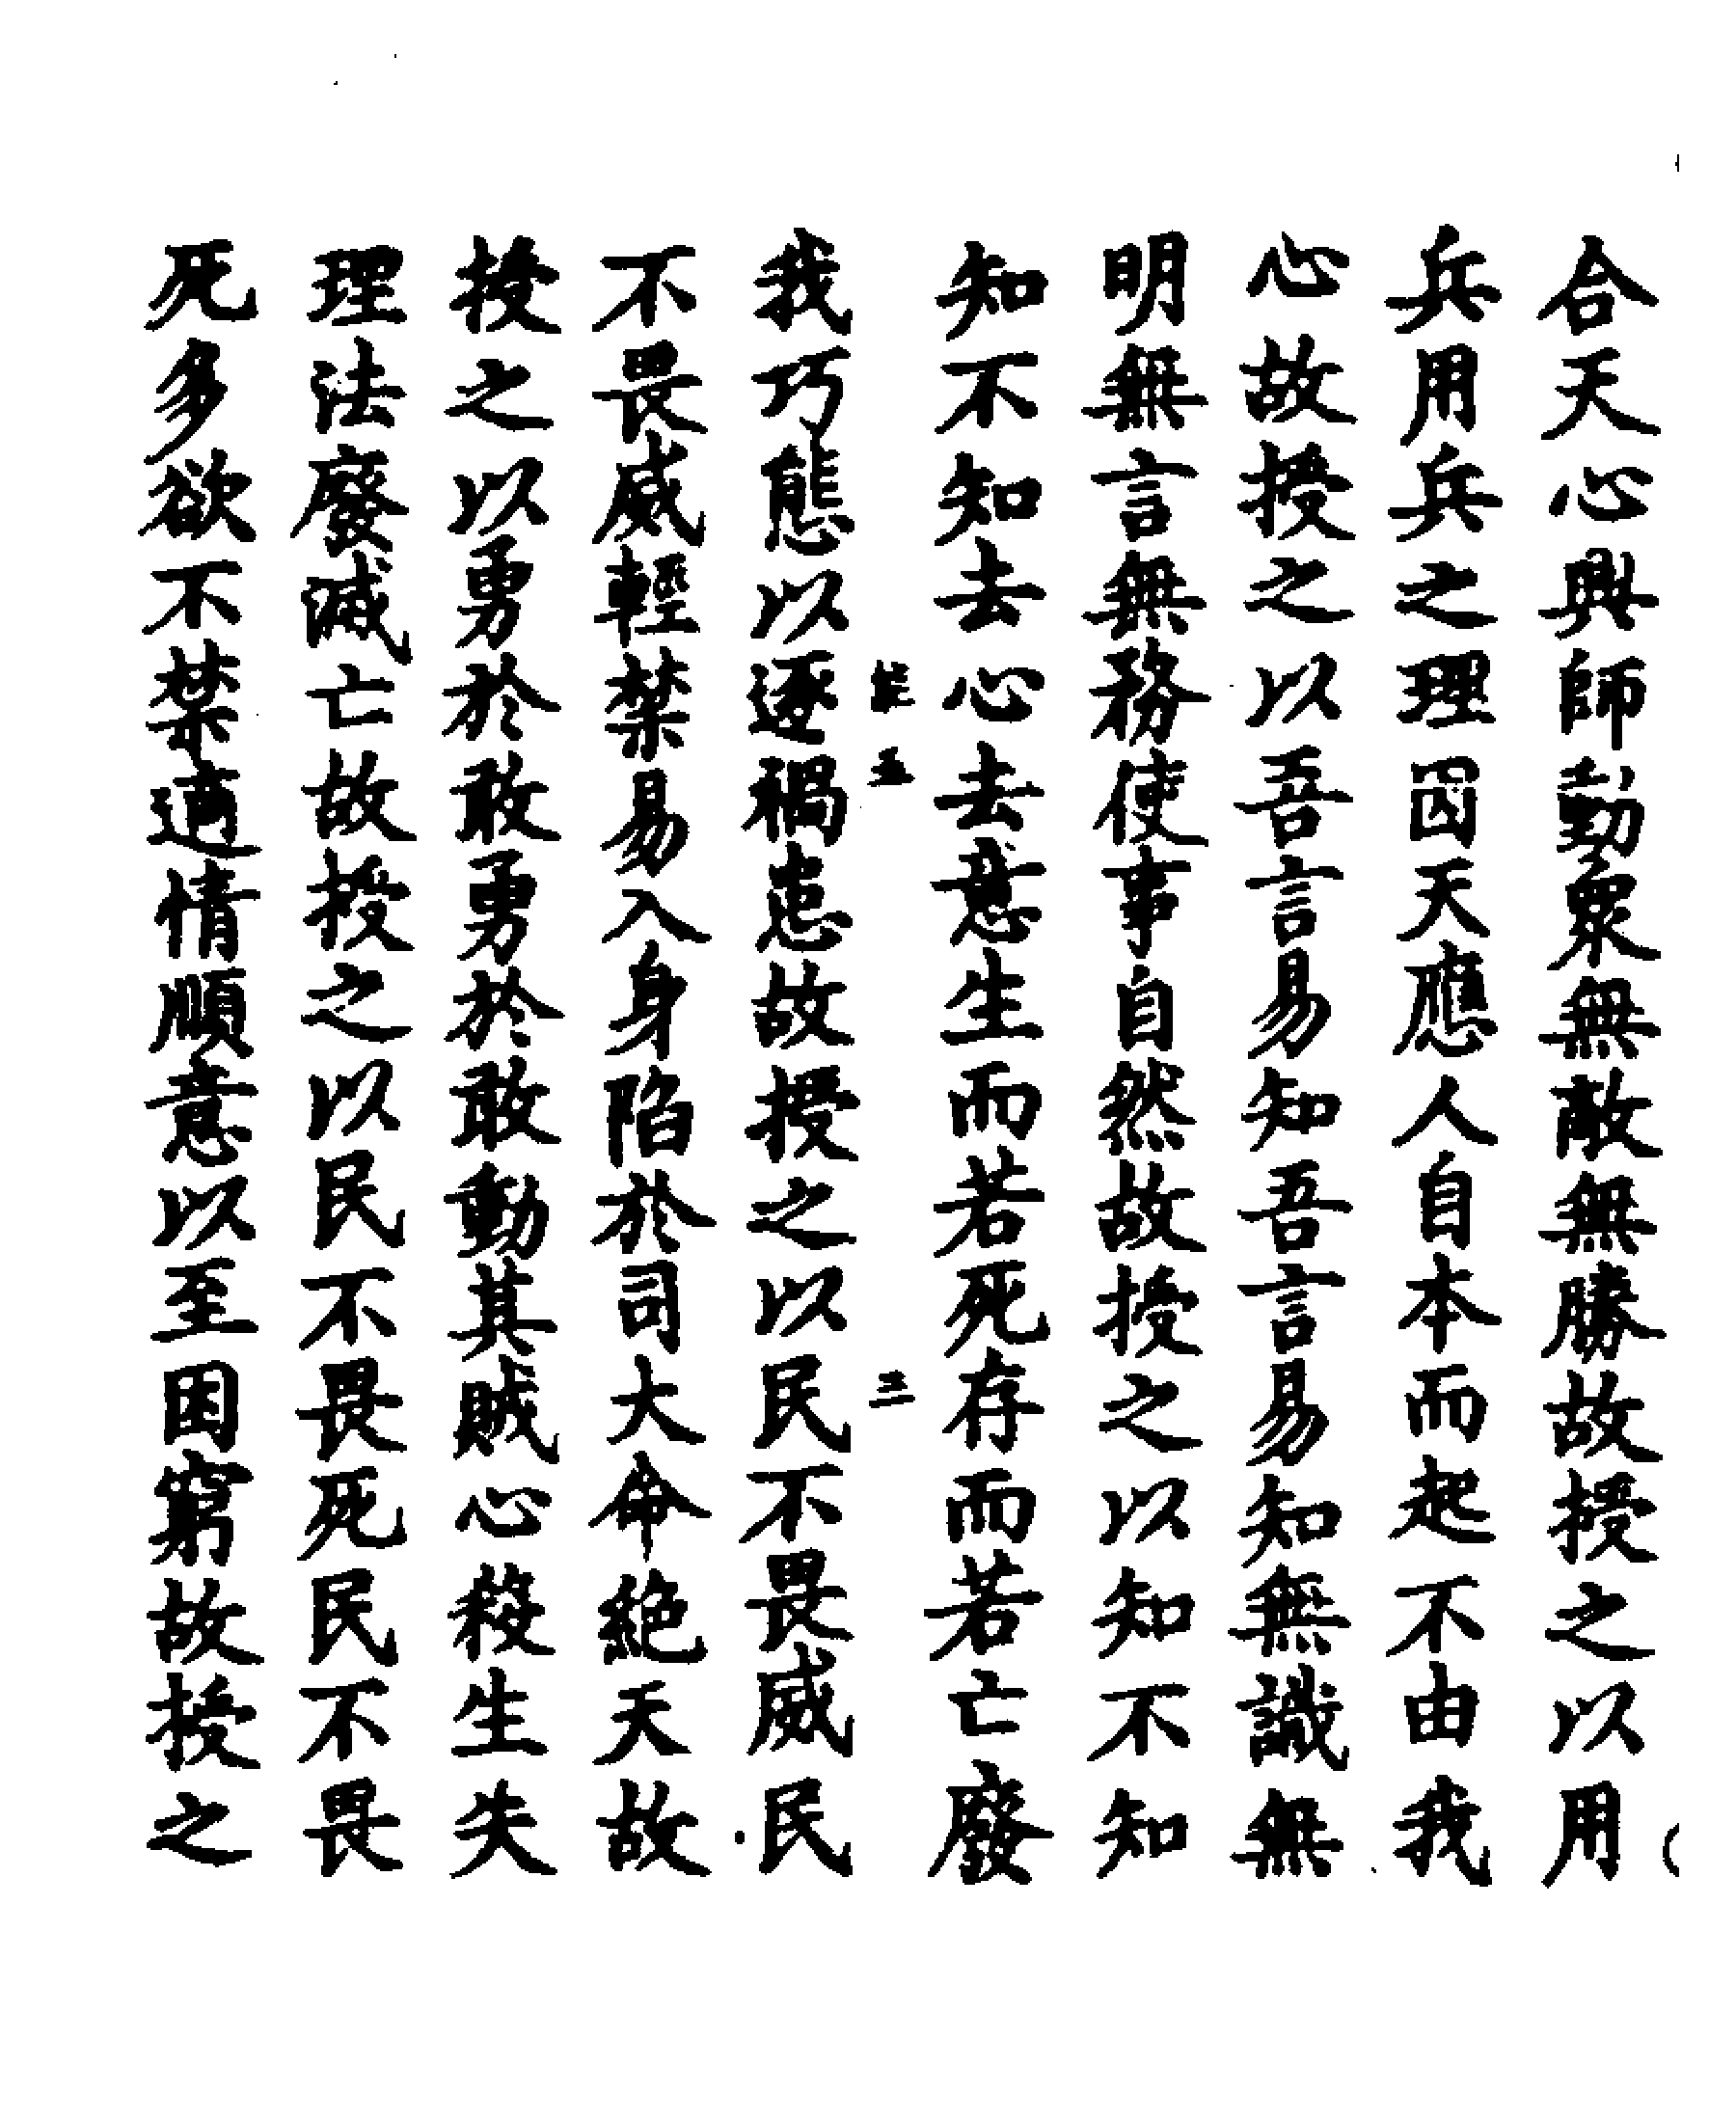 合天心興師動衆無敵無勝故授之以用
兵用兵之理因天應人自本而起不由我
心故授之以吾言易知吾言易知無識無
明無言無務使事自然故授之以知不知
知不知去心去意生而若死存而若亡廢
能五 三
我巧態以逐禍患故授之以民不畏威民
不畏威輕禁易入身陷於司大命絶天故
授之以勇於敢勇於敢動其賊心殺生失
理法廢滅亡故授之以民不畏死民不畏
死多欲不禁適情順意以至困窮故授之